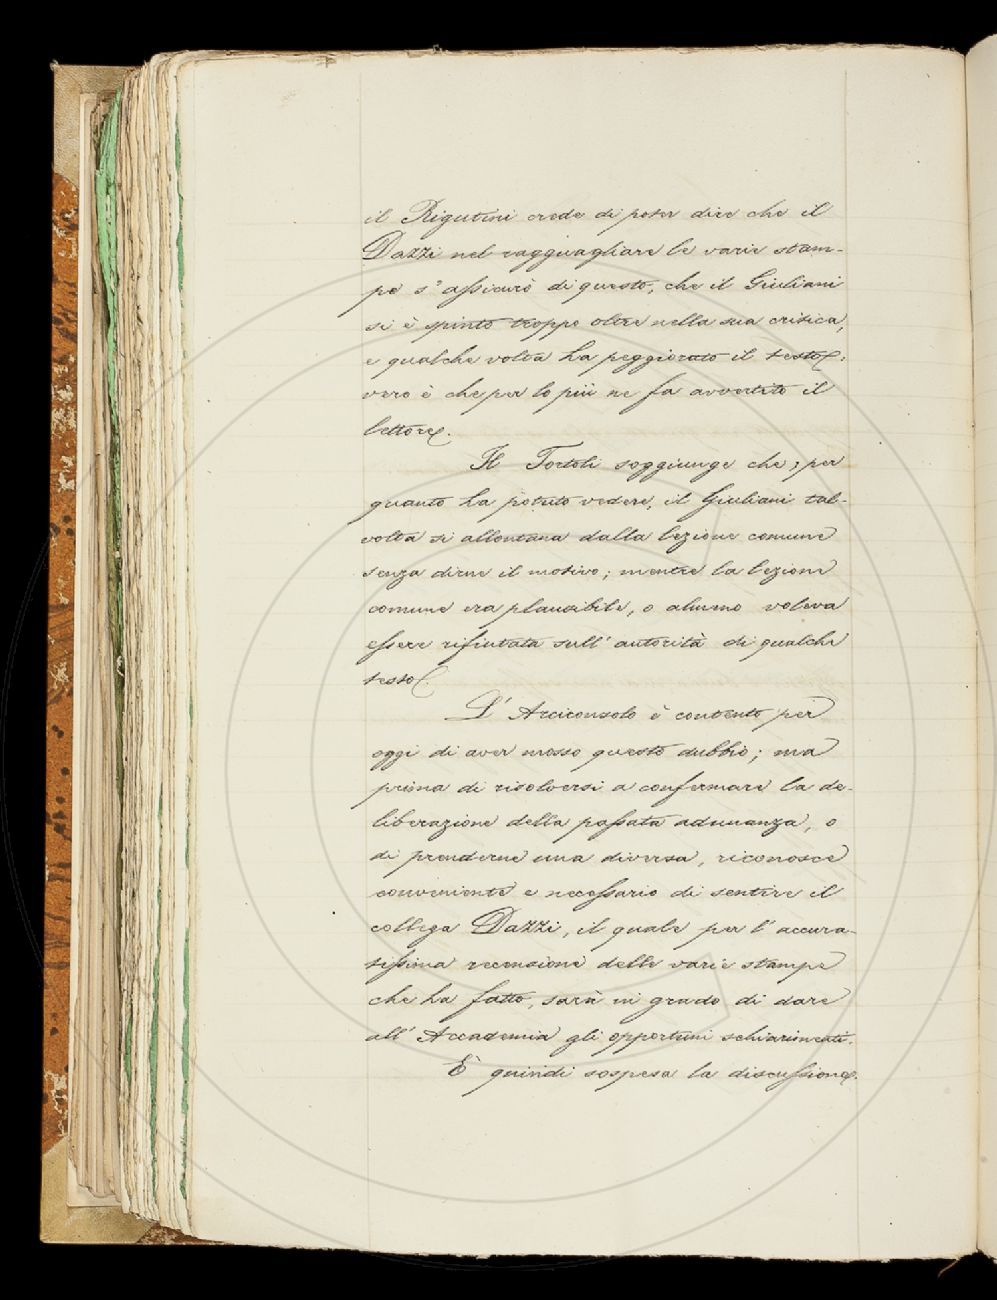 il Rigutini crede di poter dire che il
Dazzi nel ragguagliare le varie stam-
pe s'assicurò di questo, che il Giuliani
si è spinto troppo oltre nella sua critica,
e qualche volta ha peggiorato il testo;
vero è che per lo più ne fa avvertito il
lettore.
Il Tortoli soggiunge che, per
quanto ha potuto vedere, il Giuliani tal-
volta si allontana dalla lezione comune
senza dirne il motivo; mentre la lezione
comune era plausibile, o almeno voleva
essere rifiutata sull'autorità di qualche
testo.
L'Arciconsolo è contento per
oggi di aver mosso questo dubbio; ma
prima di risolversi a confermare la de-
liberazione della passata adunanza, o
di prenderne una diversa, riconosce
conveniente e necessario di sentire il
collega Dazzi, il quale per l'accura-
tissima recensione delle varie stampe
che ha fatto, sarà in grado di dare
all'Accademia gli opportuni schiarimenti.
È quindi sospesa la discussione.